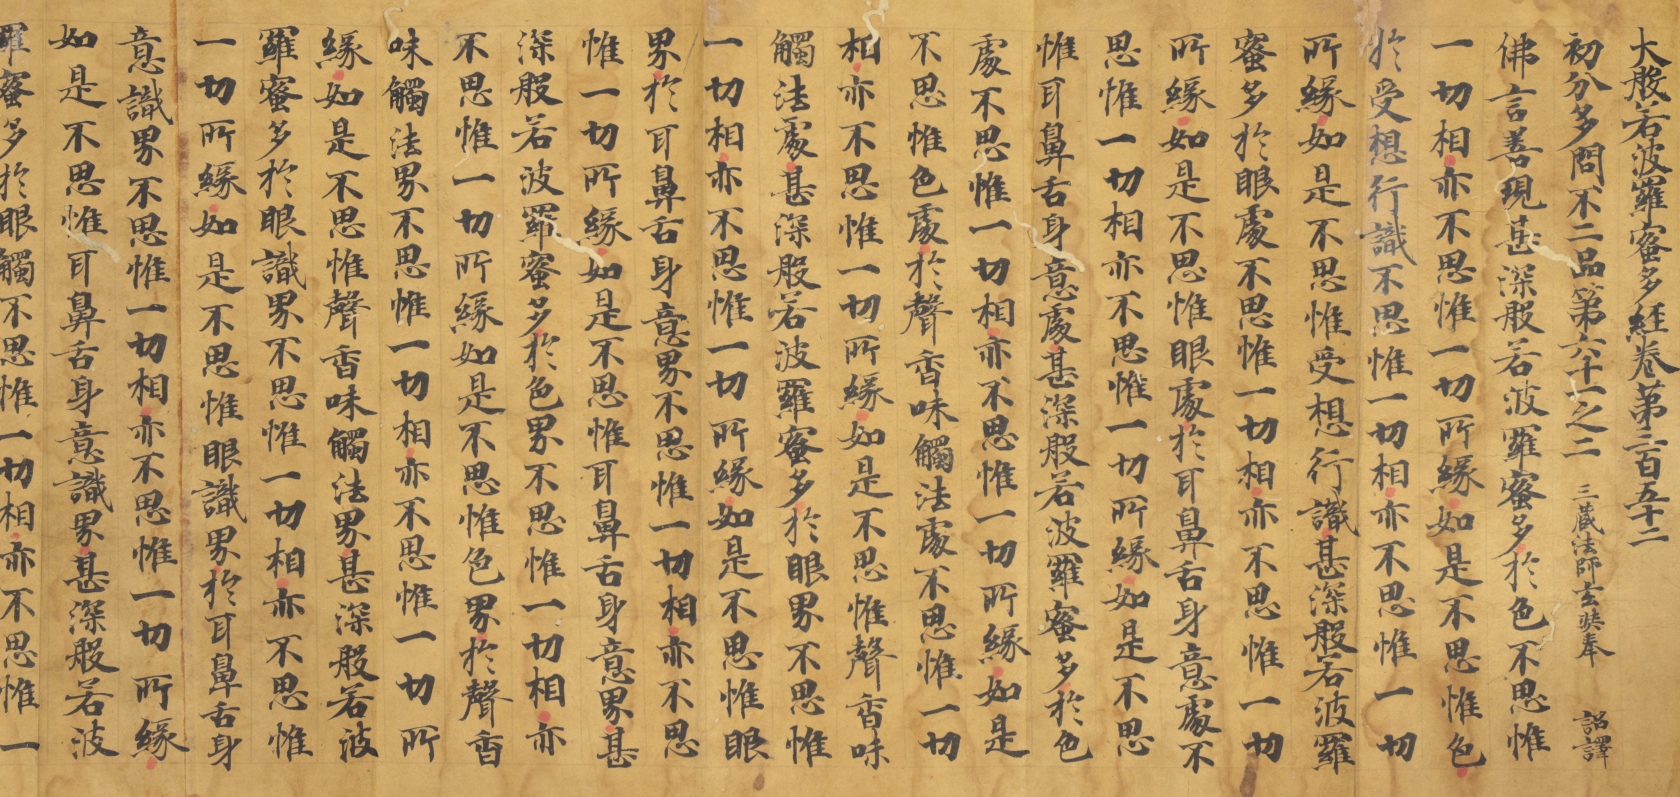 大般若波羅蜜多経卷第三百五十二
初分多問不二品第六十一之二 三藏法師玄奘奉 詔譯
佛言善現甚深般若波羅蜜多於色不思惟
一切相亦不思惟一切所緣如是不思惟色
於受想行識不思惟一切相亦不思惟一切
所緣如是不思惟受想行識甚深般若波羅
蜜多於眼處不思惟一切相亦不思惟一切
所緣如是不思惟眼處於耳鼻舌身意處不
思惟一切相亦不思惟一切所緣如是不思
惟耳鼻舌身意處甚深般若波羅蜜多於色
處不思惟一切相亦不思惟一切所緣如是
不思惟色處於聲香味觸法處不思惟一切
相亦不思惟一切所緣如是不思惟聲香味
觸法處甚深般若波羅蜜多於眼界不思惟
一切相亦不思惟一切所緣如是不思惟眼
界於耳鼻舌身意界不思惟一切相亦不思
惟一切所緣如是不思惟耳鼻舌身意界甚
深般若波羅蜜多於色界不思惟一切相亦
不思惟一切所緣如是不思惟色界於聲香
味觸法界不思惟一切相亦不思惟一切所
緣如是不思惟聲香味觸法界甚深般若波
羅蜜多於眼識界不思惟一切相亦不思惟
一切所緣如是不思惟眼識界於耳鼻舌身
意識界不思惟一切相亦不思惟一切所緣
如是不思惟耳鼻舌身意識界甚深般若波
羅蜜多於眼觸不思惟一切相亦不思惟一